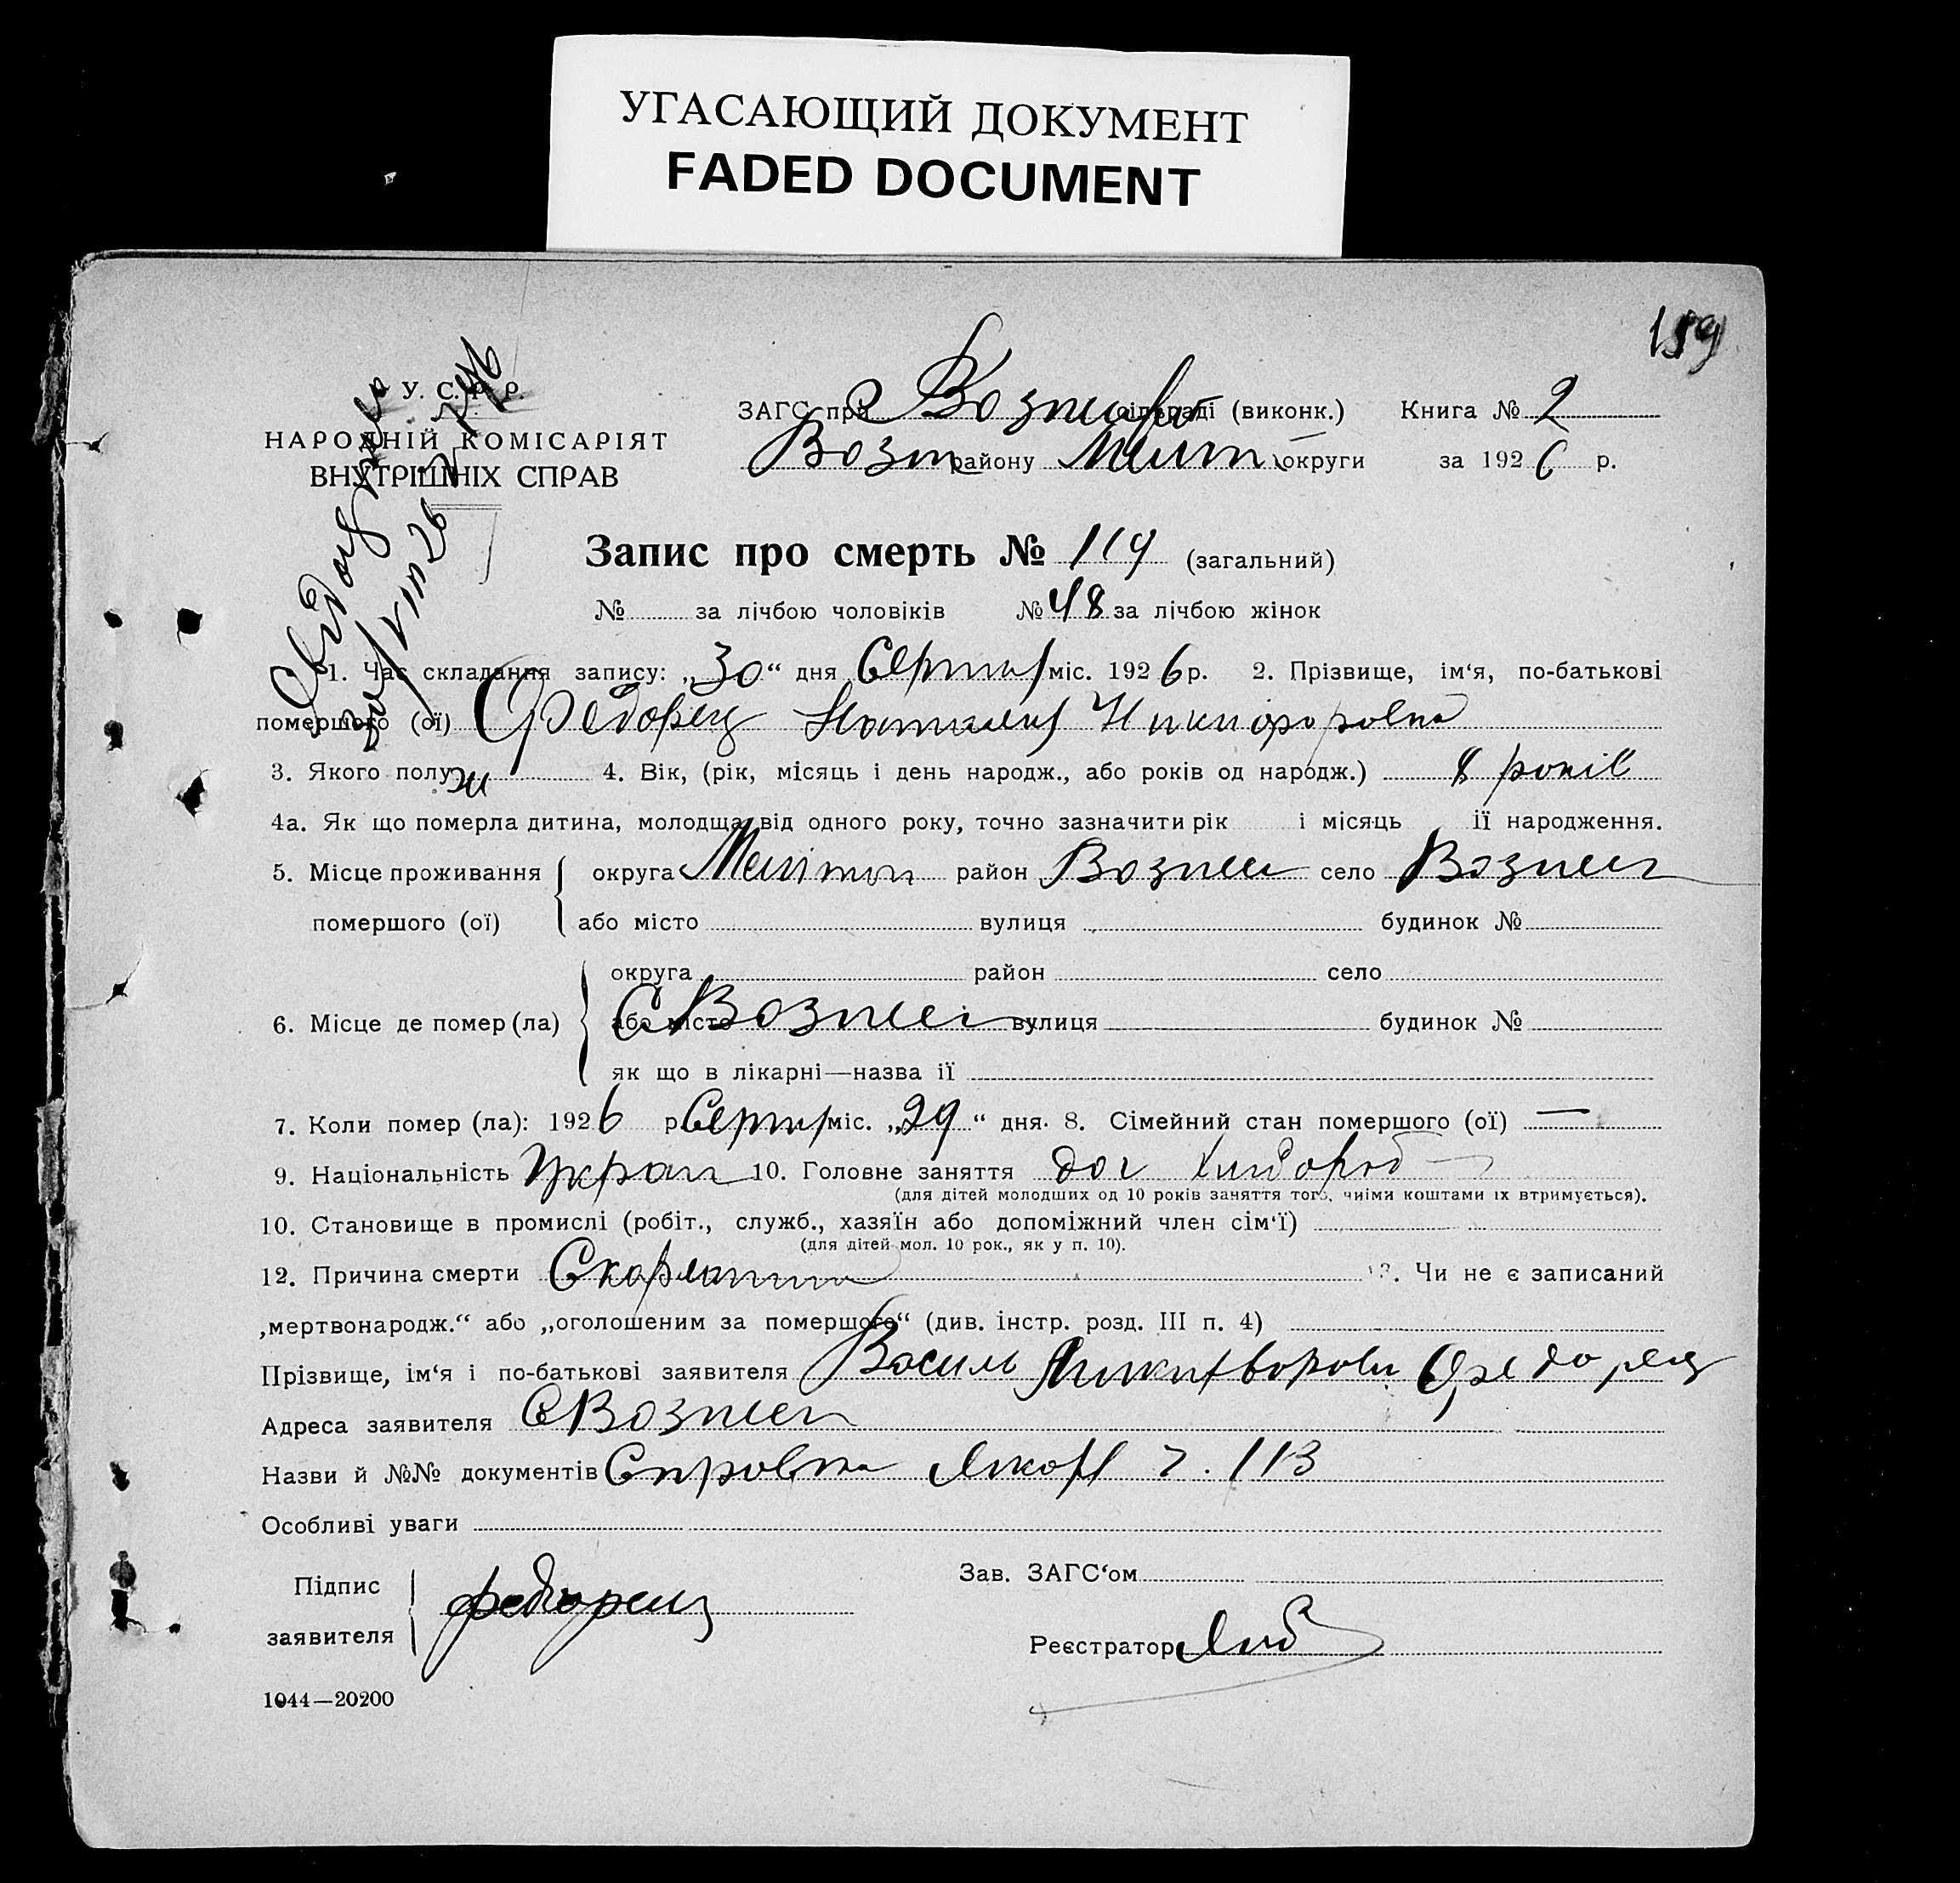 УГАСАЮЩИЙ ДОКУМЕНТ
FADED DOCUMENT
159
У. С. Р. Р.
НАРОДНІЙ КОМІСАРІЯТ
ВНУТРІШНІХ СПРАВ
ЗАГС при с Возне сільраді (виконк.) Книга № 2
Возн району Меліт округи за 1926 р.
Запис про смерть № 119 (загальний)
№ за лічбою чоловіків № 48 за лічбою жінок
1. Час складання запису: „30“ дня Серпня міс. 1926 р. 2. Прізвище, ім‘я, по-батькові
помершого (ої) Федорец Наталия Никифоровна
3. Якого полу ж 4. Вік, (рік, місяць і день народж., або років од народж.) 8 років
4а. Як що померла дитина, молодща від одного року, точно зазначити рік і місяць її народження.
5. Місце проживання округа Мелітоп район Вознес село Вознес
помершого (ої) або місто вулиця будинок №
округа район село
6. Місце де помер (ла) або місто С Вознес вулиця будинок №
як що в лікарні—назва її
7. Коли помер (ла): 1926 р. Серпня міс. „29“ дня. 8. Сімейний стан помершого (ої) —
9. Національність Украп 10. Головне заняття доч хлібороб
(для дітей молодших од 10 років заняття того, чиїми коштами їх втримується).
10. Становище в промислі (робіт., служб., хазяїн або допоміжний член сім‘ї)
(для дітей мол. 10 рок., як у п. 10).
12. Причина смерти Скарлатина 13. Чи не є записаний
„мертвонародж.“ або „оголошеним за помершого“ (див. інстр. розд. III п. 4)
Прізвище, ім‘я і по-батькові заявителя Василь Федорец
Адреса заявителя С Вознес
Назви й №№ документів Справка ч. 113
Особливі уваги
Підпис
заявителя федорец
Зав. ЗАГС‘ом
Реєстратор
1044—20200